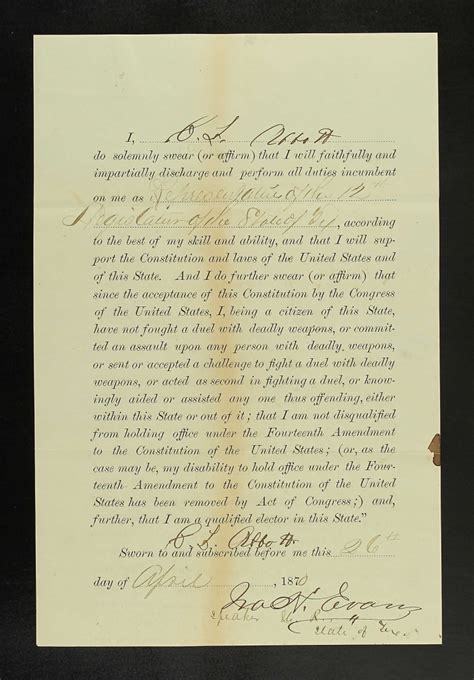 I, C. L. Abbott
do solemnly swear (or affirm) that I will faithfully and
impartially discharge and perform all duties incumbent
on me as Representative of the 12th
Legislature of the State of Tex, according
to the best of my skill and ability, and that I will sup-
port the Constitution and laws of the United States and
of this State. And I do further swear (or affirm) that
since the acceptance of this Constitution by the Congress
of the United States, I, being a citizen of this State,
have not fought a duel with deadly weapons, or commit-
ted an assault upon any person with deadly weapons,
or sent or accepted a challenge to fight a duel with deadly
weapons, or acted as second in fighting a duel, or know-
ingly aided or assisted any one thus offending, either
within this State or out of it; that I am not disqualified
from holding office under the Fourteenth Amendment
to the Constitution of the United States; (or, as the
case may be, my disability to hold office under the Four-
teenth Amendment to the Constitution of the United
States has been removed by Act of Congress;) and,
further, that I am a qualified elector in this State."
C L Abbott
Sworn to and subscribed before me this 26th
day of April, 1870
Ira H. Evans
Speaker
State of Tex